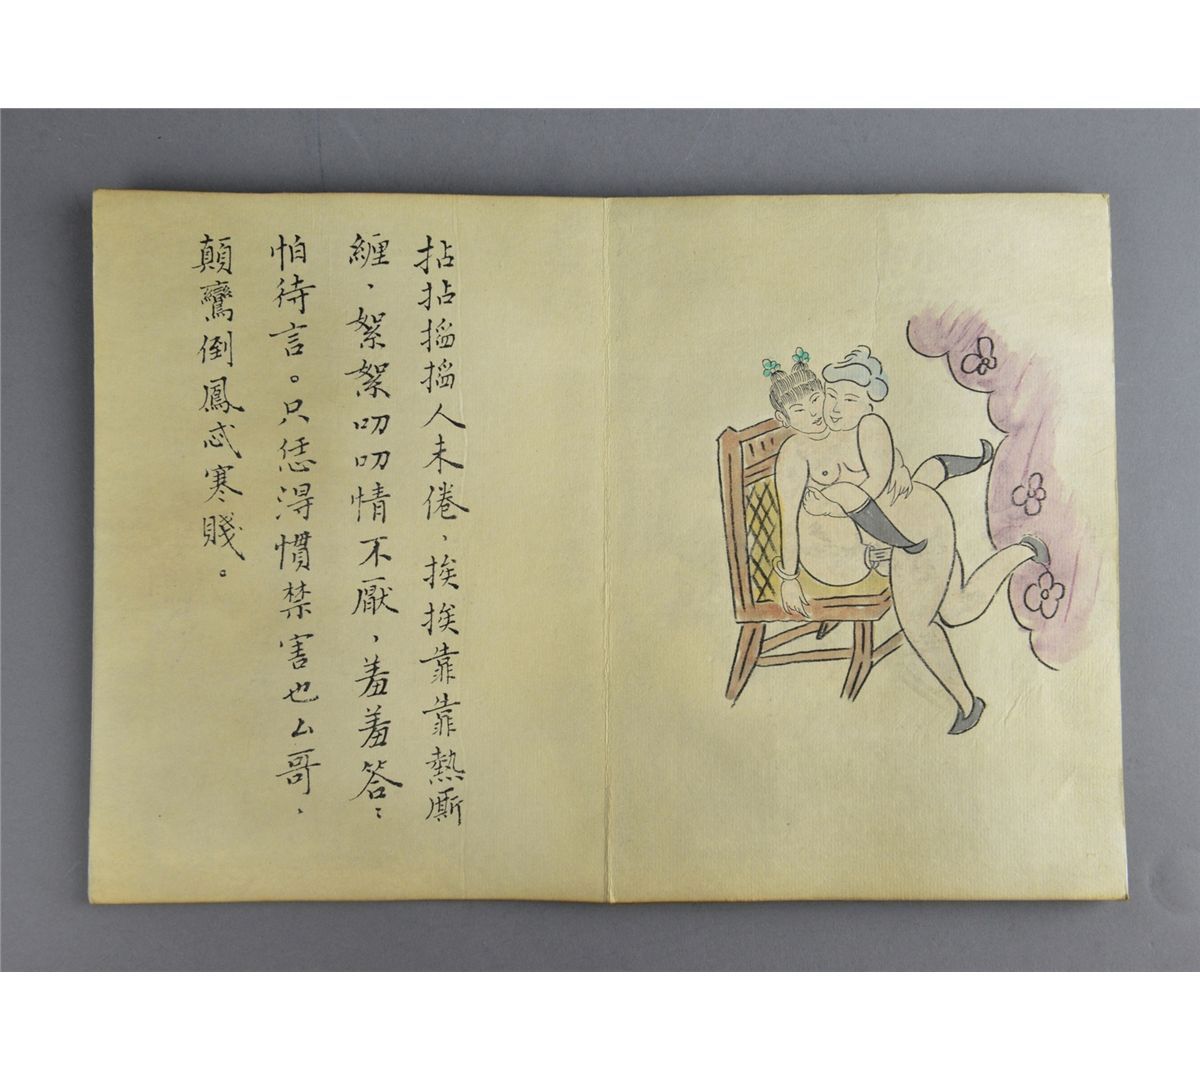 拈拈搯搯人未倦、挨挨靠靠熱厮
纏、絮絮叨叨情不厭，羞羞答：
怕待言。只恁淂慣禁害也厶哥、
顛鸞倒鳳忒寒賤。